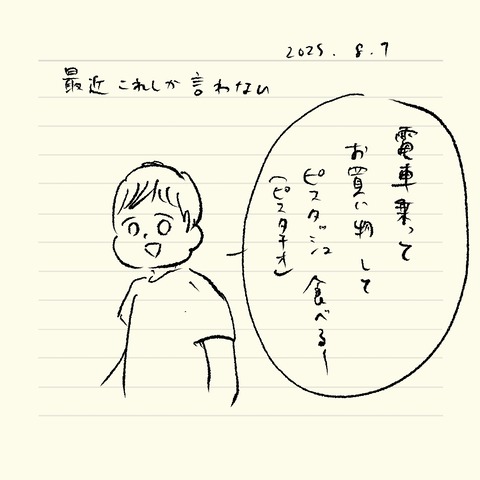 2025. 8. 7
最近これしか言わない
電車乗って
お買い物して
ピスタッシュ食べるー
(ピスタチオ)